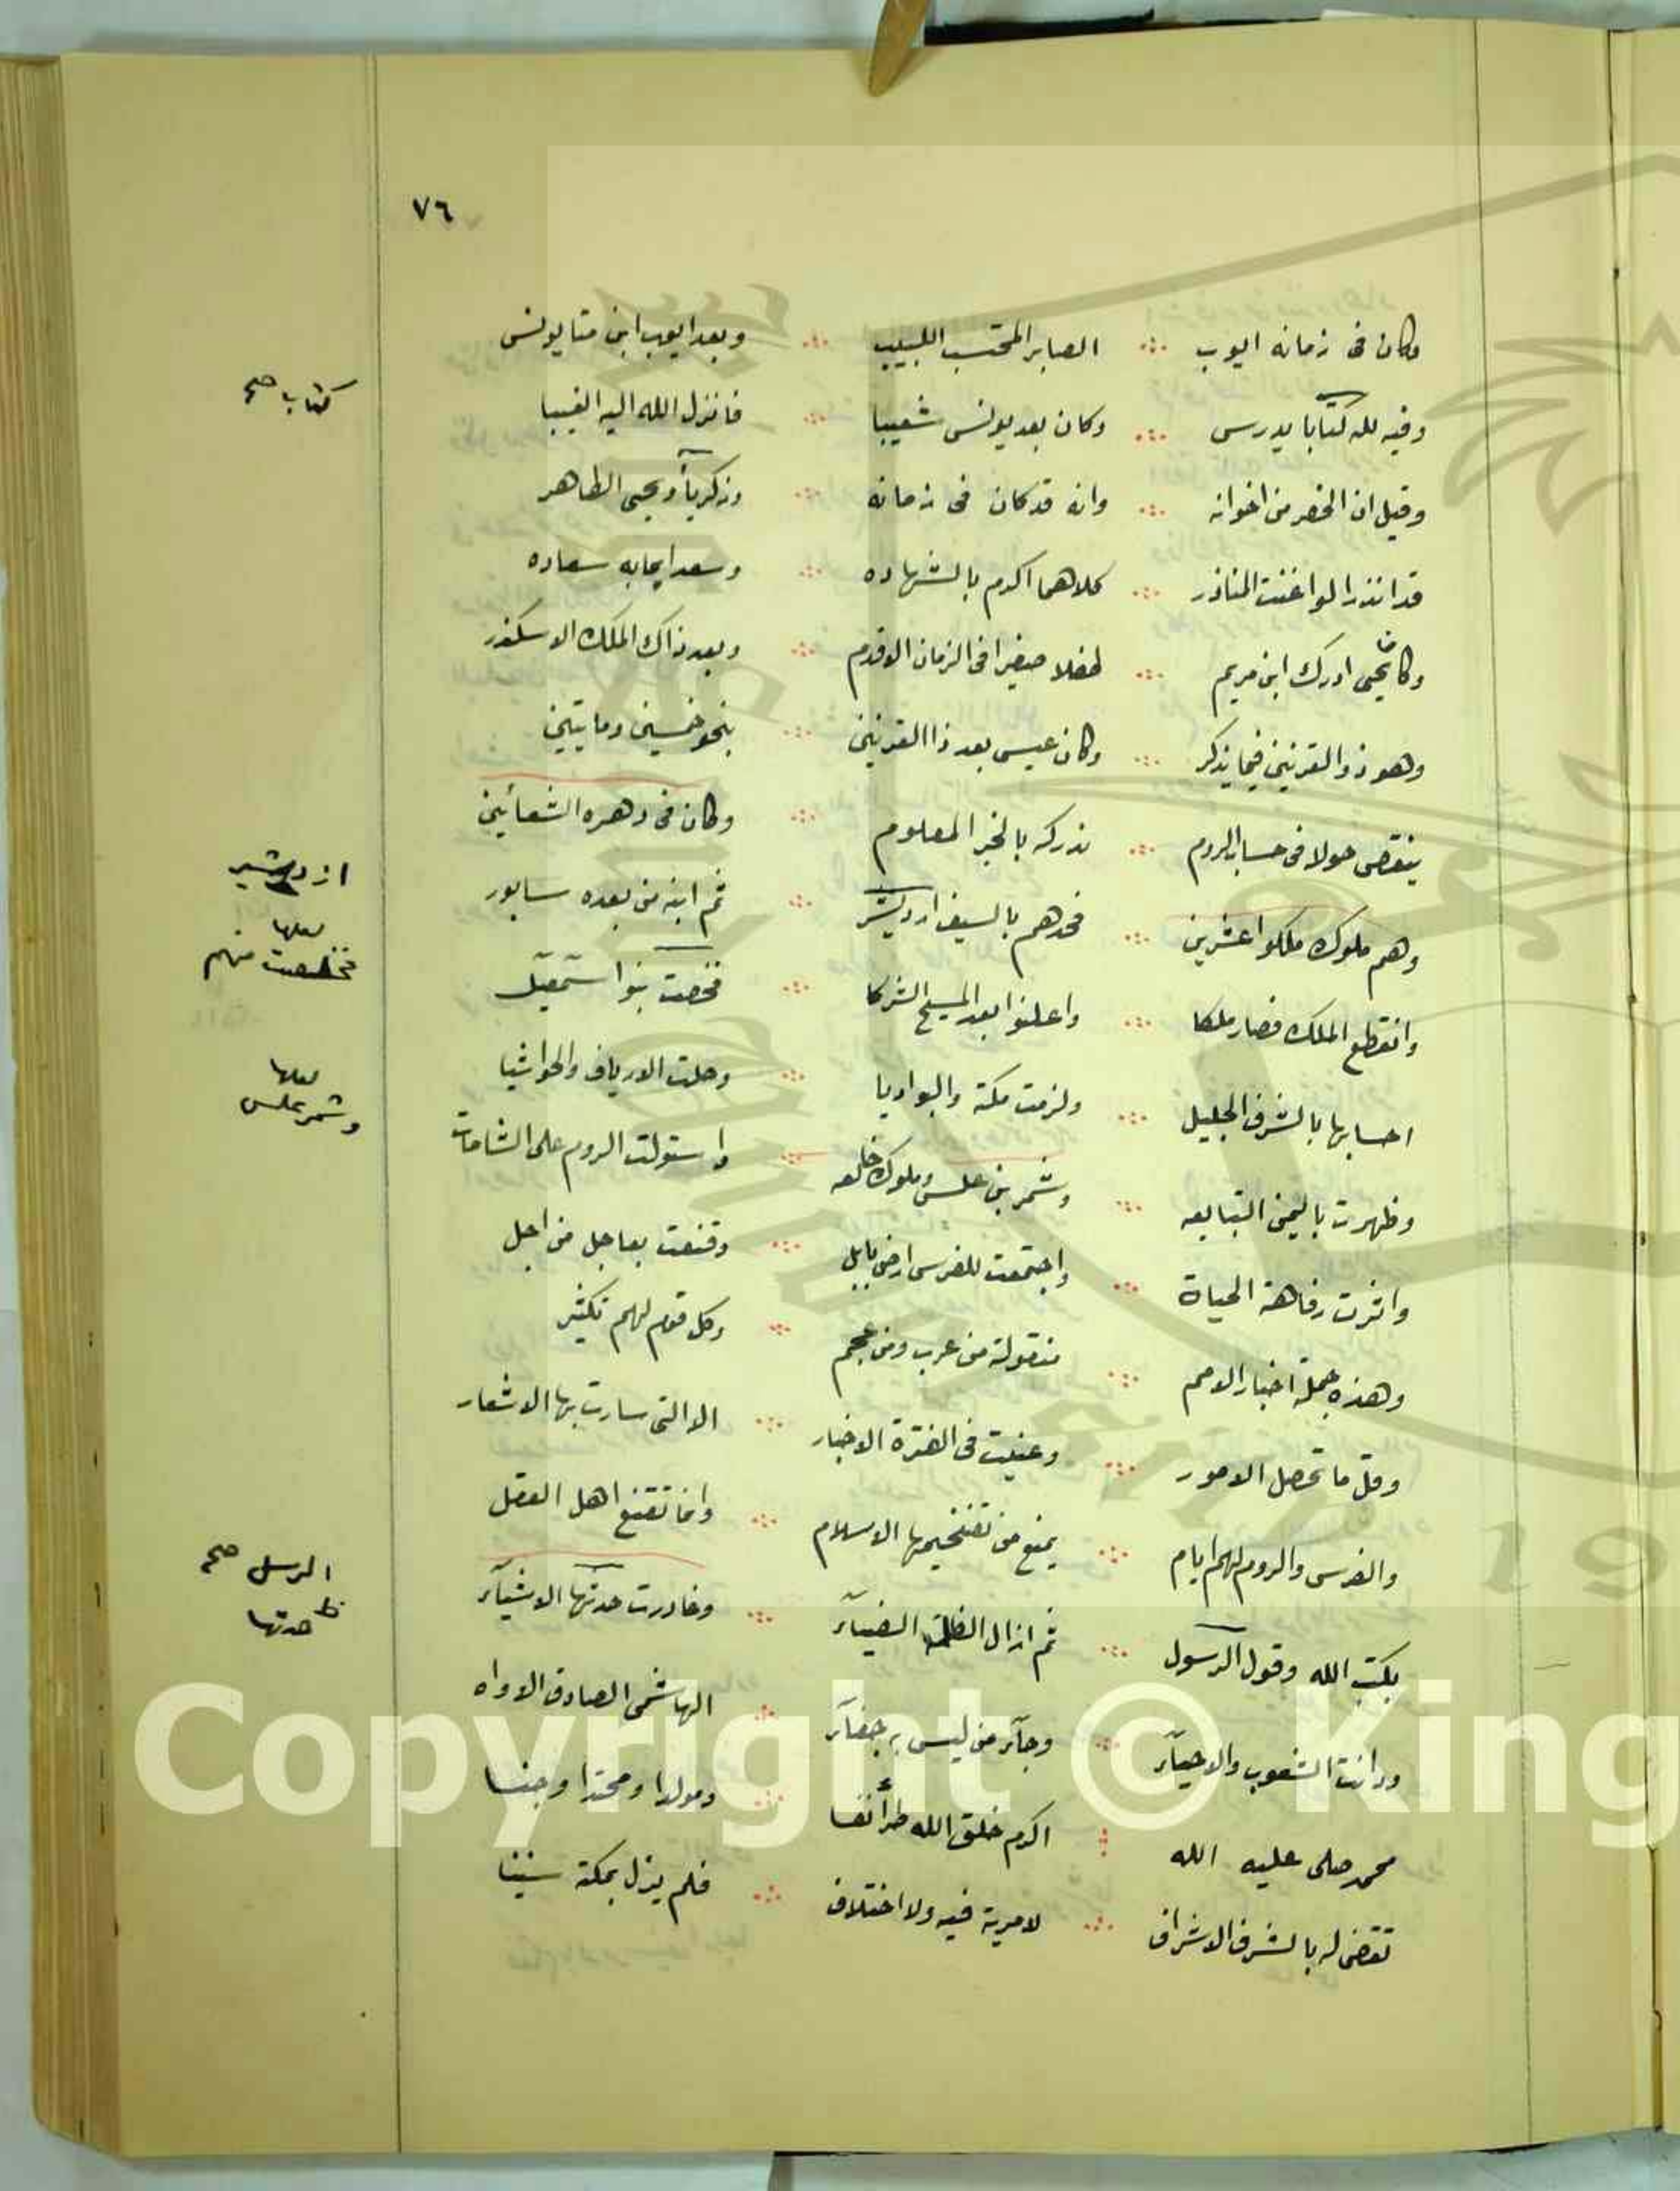 ٧٦
وكان فى زمانه ايوب ∴ الصابر المحتسب اللبيب ∴ وبعد ايوب ابن متا يونس
وفيه لله كتابا يدرس ∴ وكان بعد يونس شعيبا ∴ فانزل الله اليه الغيبا
كتاب صح
وقيل ان الخضر من اخوانه ∴ وانه قد كان فى زمانه ∴ وزكريآ ويحيى الطاهر
قد انذرا لو اغنت المناذر ∴ كلاهما اكرم بالشهاده ∴ وسعدا بها به سعاده
وكان يحيى ادرك ابن مريم ∴ طفلا صغيرا فى الزمان الاقدم ∴ وبعد ذاك الملك الاسكندر
وهو ذو القرنين فيما يذكر ∴ وكان عيسى بعد ذا القرنين ∴ بنحو خمسين ومايتين
ينقص حولا فى حساب الروم ∴ ندركه بالخبر المعلوم ∴ وكان فى دهره الشعانين
وهم ملوك ملكوا عشرين ∴ فحدهم بالسيف اردشير ∴ ثم ابنه من بعده سابور
ازدشير
وانقطع الملك فصار ملكا ∴ واعلنوا بعد المسيح الشركا ∴ فخصت بنوا سمعيل
لعلها
فخلصت منهم
احسابها بالشرف الجليل ∴ ولزمت مكة والبواديا ∴ وحلت الارياف والحواشيا
وظهرت باليمن التبابعه ∴ وشمر بن علس وملوك خالعه ∴ واستولت الروم على الشامات
لعلها
وشمر علس
واثرت رفاهة الحياة ∴ واجتمعت للفرس ارض بابل ∴ وقنعت بعاجل من اجل
وهذه جملة اخبار الامم ∴ منقولة من عرب ومن عجم ∴ وكل قوم لهم تكثير
وقل ما تحصل الامور ∴ وعنيت فى الفترة الاخبار ∴ الا التى سارت بها الاشعار
والفرس والروم لهم ايام ∴ يمنع من تفخيمها الاسلام ∴ وانما تقنع اهل العقل
بكتب الله وقول الرسول ∴ ثم ازال الظلمة الضيآء ∴ وغادرت حدتها الاشيآء
الرسل صح
ظ حدتها
ودانت الشعوب والاحيآء ∴ وجآء من ليس به جفآء ∴ الهاشمى الصادق الاواه
محمد صلى عليه الله ∴ اكرم خلق الله طرا نفسا ∴ ومولدا ومحتدا وجنسا
تقضى له بالشرف الاشراف ∴ لامرية فيه ولا اختلاف ∴ فلم يزل بمكة سنينا
Copyright © King